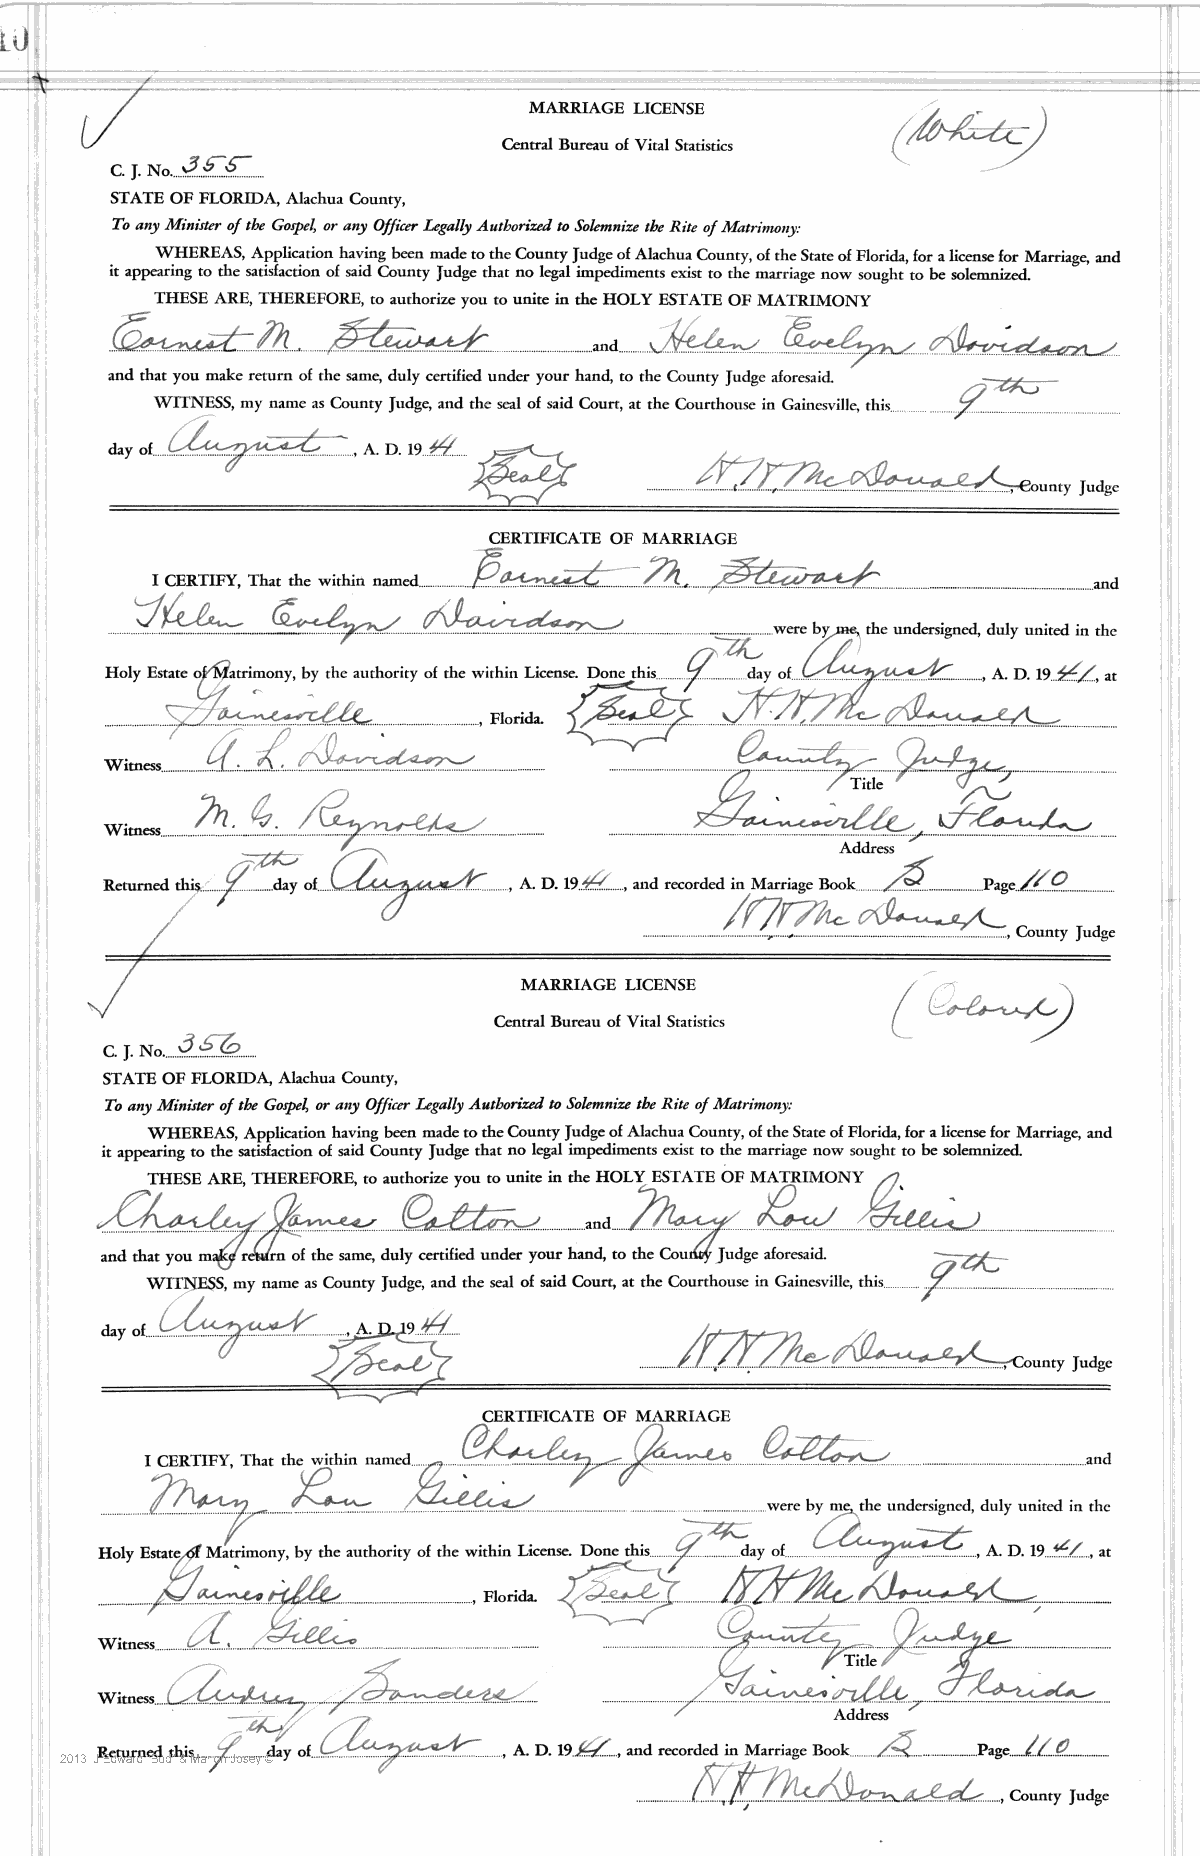 10
MARRIAGE LICENSE
(White)
Central Bureau of Vital Statistics
C. J. No. 355
STATE OF FLORIDA, Alachua County,
To any Minister of the Gospel, or any Officer Legally Authorized to Solemnize the Rite of Matrimony:
WHEREAS, Application having been made to the County Judge of Alachua County, of the State of Florida, for a license for Marriage, and
it appearing to the satisfaction of said County Judge that no legal impediments exist to the marriage now sought to be solemnized.
THESE ARE, THEREFORE, to authorize you to unite in the HOLY ESTATE OF MATRIMONY
Earnest M. Stewart and Helen Evelyn Davidson
and that you make return of the same, duly certified under your hand, to the County Judge aforesaid.
WITNESS, my name as County Judge, and the seal of said Court, at the Courthouse in Gainesville, this 9th
day of August, A. D. 1941
Seal H. H. McDonald, County Judge
CERTIFICATE OF MARRIAGE
I CERTIFY, That the within named Earnest M. Stewart and
Helen Evelyn Davidson were by me, the undersigned, duly united in the
Holy Estate of Matrimony, by the authority of the within License. Done this 9th day of August, A. D. 1941, at
Gainesville, Florida. Seal H. H. McDonald
Witness A. L. Davidson County Judge,
Title
Witness M. G. Reynolds Gainesville, Florida
Address
Returned this 9th day of August, A. D. 1941, and recorded in Marriage Book B Page 110
H. H. McDonald, County Judge
MARRIAGE LICENSE
(Colored)
Central Bureau of Vital Statistics
C. J. No. 356
STATE OF FLORIDA, Alachua County,
To any Minister of the Gospel, or any Officer Legally Authorized to Solemnize the Rite of Matrimony:
WHEREAS, Application having been made to the County Judge of Alachua County, of the State of Florida, for a license for Marriage, and
it appearing to the satisfaction of said County Judge that no legal impediments exist to the marriage now sought to be solemnized.
THESE ARE, THEREFORE, to authorize you to unite in the HOLY ESTATE OF MATRIMONY
Charley James Cotton and Mary Lou Gillis
and that you make return of the same, duly certified under your hand, to the County Judge aforesaid.
WITNESS, my name as County Judge, and the seal of said Court, at the Courthouse in Gainesville, this 9th
day of August, A. D. 1941
Seal H. H. McDonald, County Judge
CERTIFICATE OF MARRIAGE
I CERTIFY, That the within named Charley James Cotton and
Mary Lou Gillis were by me, the undersigned, duly united in the
Holy Estate of Matrimony, by the authority of the within License. Done this 9th day of August, A. D. 1941, at
Gainesville, Florida. Seal H H McDonald,
Witness A. Gillis County Judge
Title
Witness Audrey Sanders Gainesville, Florida
Address
Returned this 9th day of August, A. D. 1941, and recorded in Marriage Book B Page 110
2013 J Edward "Bud" & Marion Josey ©
H. H. McDonald, County Judge